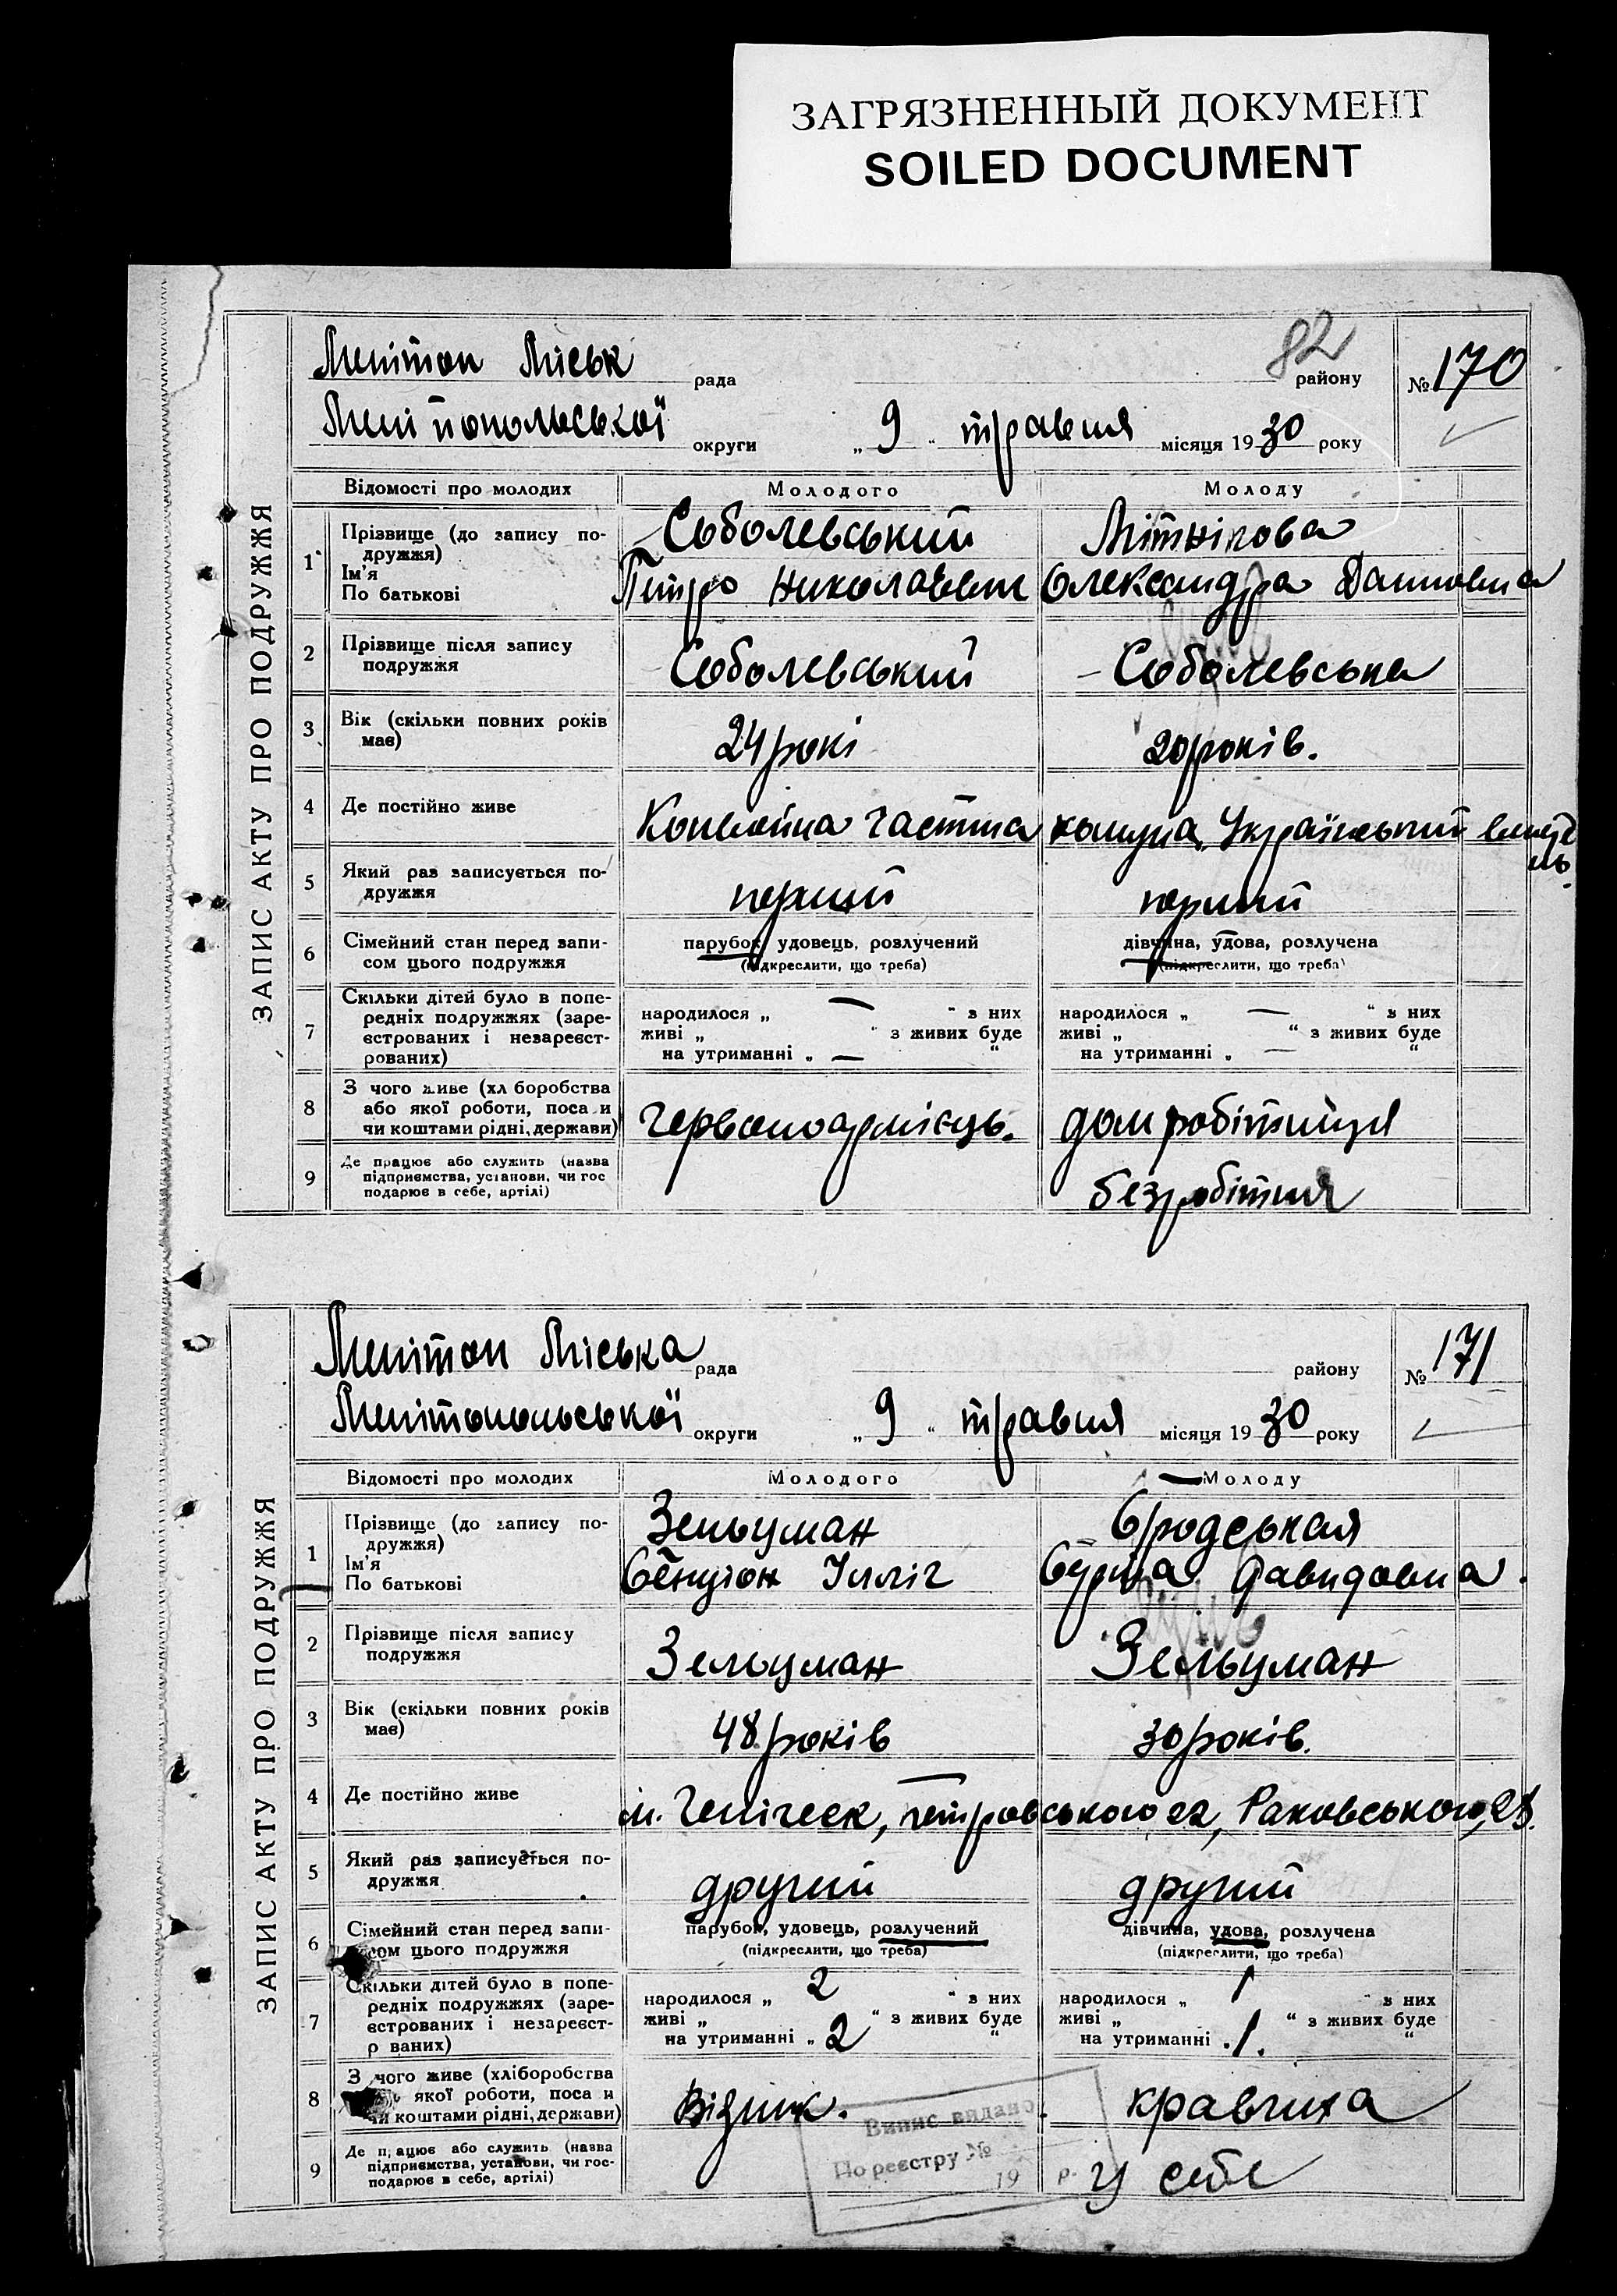 ЗАГРЯЗНЕННЫЙ ДОКУМЕНТ
SOILED DOCUMENT
82
ЗАПИС АКТУ ПРО ПОДРУЖЖЯ
Мелітоп Міськ рада району № 170
Мелітопольської округи „ 9 “ травня місяця 19 30 року
Відомості про молодих Молодого Молоду
1 Прізвище (до запису подружжя) Соболевський Мітнікова
Ім'я
По батькові Петро Николаевич Олександра Даниловна
2 Прізвище після запису подружжя Соболевський Соболевська
3 Вік (скільки повних років має) 24 рокі 20 років.
4 Де постійно живе Конвойна частина комуна „Український
5 Який раз записується подружжя перший перший
6 Сімейний стан перед записом цього подружжя парубок, удовець, розлучений дівчина, удова, розлучена
(підкреслити, що треба) (підкреслити, що треба)
7 Скільки дітей було в попередніх подружжях (зареєстрованих і незареєстрованих) народилося „ — “ з них народилося „ — “ з них
живі „ “ з живих буде живі „ “ з живих буде
на утриманні „ — “ на утриманні „ — “
8 З чого живе (хліборобства або якої роботи, поса и чи коштами рідні, держави) Червоноармієць. домробітниця
9 Де працює або служить (назва підприємства, установи, чи гос подарює в себе, артілі) безробітня
ЗАПИС АКТУ ПРО ПОДРУЖЖЯ
Мелітоп Міська рада району № 171
Мелітопольської округи „ 9 “ травня місяця 19 30 року
Відомості про молодих Молодого Молоду
1 Прізвище (до запису подружжя) Зельцман Бродськая
Ім'я
По батькові Бенціон Ілліч Давидовна.
2 Прізвище після запису подружжя Зельцман Зельцман
3 Вік (скільки повних років має) 48 років 30 років.
4 Де постійно живе м. Генічеськ, Петровського 22, Раковського, 28.
5 Який раз записується подружжя другий другий
6 Сімейний стан перед записом цього подружжя парубок, удовець, розлучений дівчина, удова, розлучена
(підкреслити, що треба) (підкреслити, що треба)
7 Скільки дітей було в попередніх подружжях (зареєстрованих і незареєстр ваних) народилося „ 2 “ з них народилося „ 1 “ з них
живі „ “ з живих буде живі „ “ з живих буде
на утриманні „ 2 “ на утриманні „ 1. “
8 З чого живе (хліборобства якої роботи, поса и чи коштами рідні, держави) Візник. кравчиха
9 Де працює або служить (назва підприємства, установи, чи господарює в себе, артілі) у себе
Випис видано
По реєстру №
19 р.